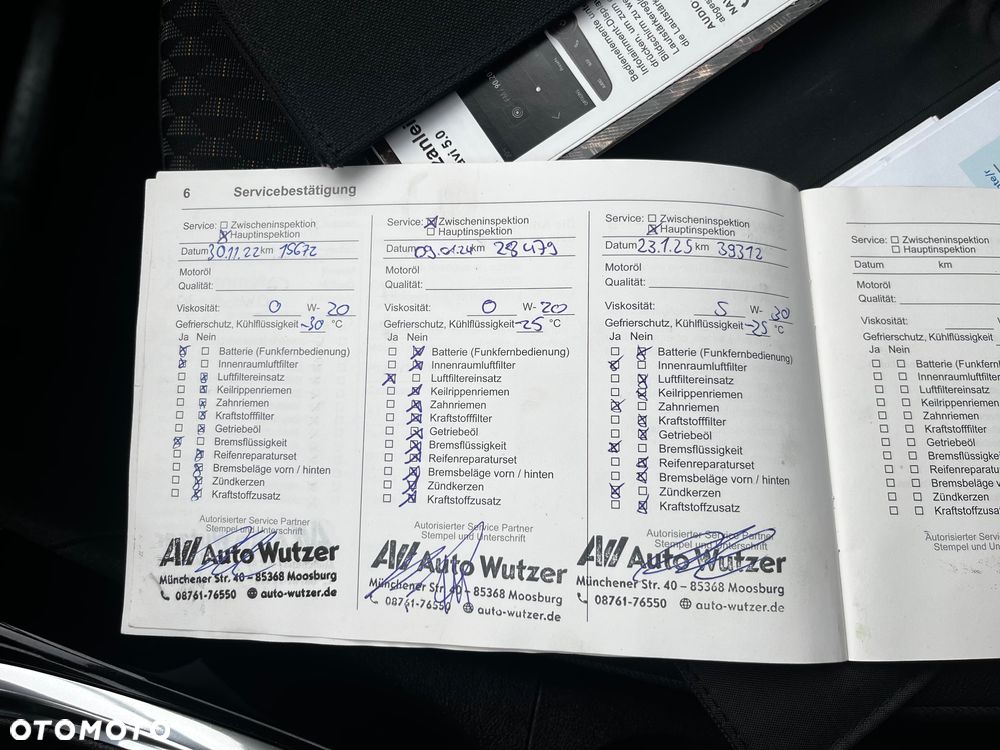 Bedienelemente unte
Infotainment-Displa
drücken, um zum
Lautstärkeregle
Bildschirm zu we
die Lautstärke
AUDIO
FM / 90.20
zanlei
avi 5.0
6 Servicebestätigung
Service: Zwischeninspektion
Hauptinspektion
Datum 30.11.22 km 19672
Motoröl
Qualität:
Viskosität: 0 W- 20
Gefrierschutz, Kühlflüssigkeit -30 °C
Ja Nein
Batterie (Funkfernbedienung)
Innenraumluftfilter
Luftfiltereinsatz
Keilrippenriemen
Zahnriemen
Kraftstofffilter
Getriebeöl
Bremsflüssigkeit
Reifenreparaturset
Bremsbeläge vorn / hinten
Zündkerzen
Kraftstoffzusatz
Autorisierter Service Partner
Stempel und Unterschrift
AW Auto Wutzer
Münchener Str. 40 – 85368 Moosburg
08761-76550 auto-wutzer.de
Service: Zwischeninspektion
Hauptinspektion
Datum 09.01.24 km 28479
Motoröl
Qualität:
Viskosität: 0 W- 20
Gefrierschutz, Kühlflüssigkeit -25 °C
Ja Nein
Batterie (Funkfernbedienung)
Innenraumluftfilter
Luftfiltereinsatz
Keilrippenriemen
Zahnriemen
Kraftstofffilter
Getriebeöl
Bremsflüssigkeit
Reifenreparaturset
Bremsbeläge vorn / hinten
Zündkerzen
Kraftstoffzusatz
Autorisierter Service Partner
Stempel und Unterschrift
AW Auto Wutzer
Münchener Str. 40 – 85368 Moosburg
08761-76550 auto-wutzer.de
Service: Zwischeninspektion
Hauptinspektion
Datum 23.1.25 km 39312
Motoröl
Qualität:
Viskosität: 5 W- 30
Gefrierschutz, Kühlflüssigkeit -25 °C
Ja Nein
Batterie (Funkfernbedienung)
Innenraumluftfilter
Luftfiltereinsatz
Keilrippenriemen
Zahnriemen
Kraftstofffilter
Getriebeöl
Bremsflüssigkeit
Reifenreparaturset
Bremsbeläge vorn / hinten
Zündkerzen
Kraftstoffzusatz
Autorisierter Service Partner
Stempel und Unterschrift
AW Auto Wutzer
Münchener Str. 40 – 85368 Moosburg
08761-76550 auto-wutzer.de
Service: Zwischeninspektion
Hauptinspektion
Datum km
Motoröl
Qualität:
Viskosität: W-
Gefrierschutz, Kühlflüssigkeit
Ja Nein
Batterie (Funkfernb
Innenraumluftfilter
Luftfiltereinsatz
Keilrippenriemen
Zahnriemen
Kraftstofffilter
Getriebeöl
Bremsflüssigkeit
Reifenreparaturset
Bremsbeläge vorn
Zündkerzen
Kraftstoffzusatz
Autorisierter Service Par
Stempel und Unterschri
OTOMOTO